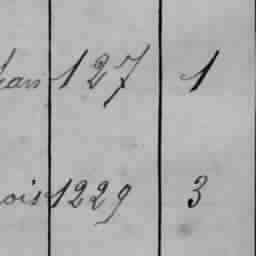 ean 127 1
ois 1229 3